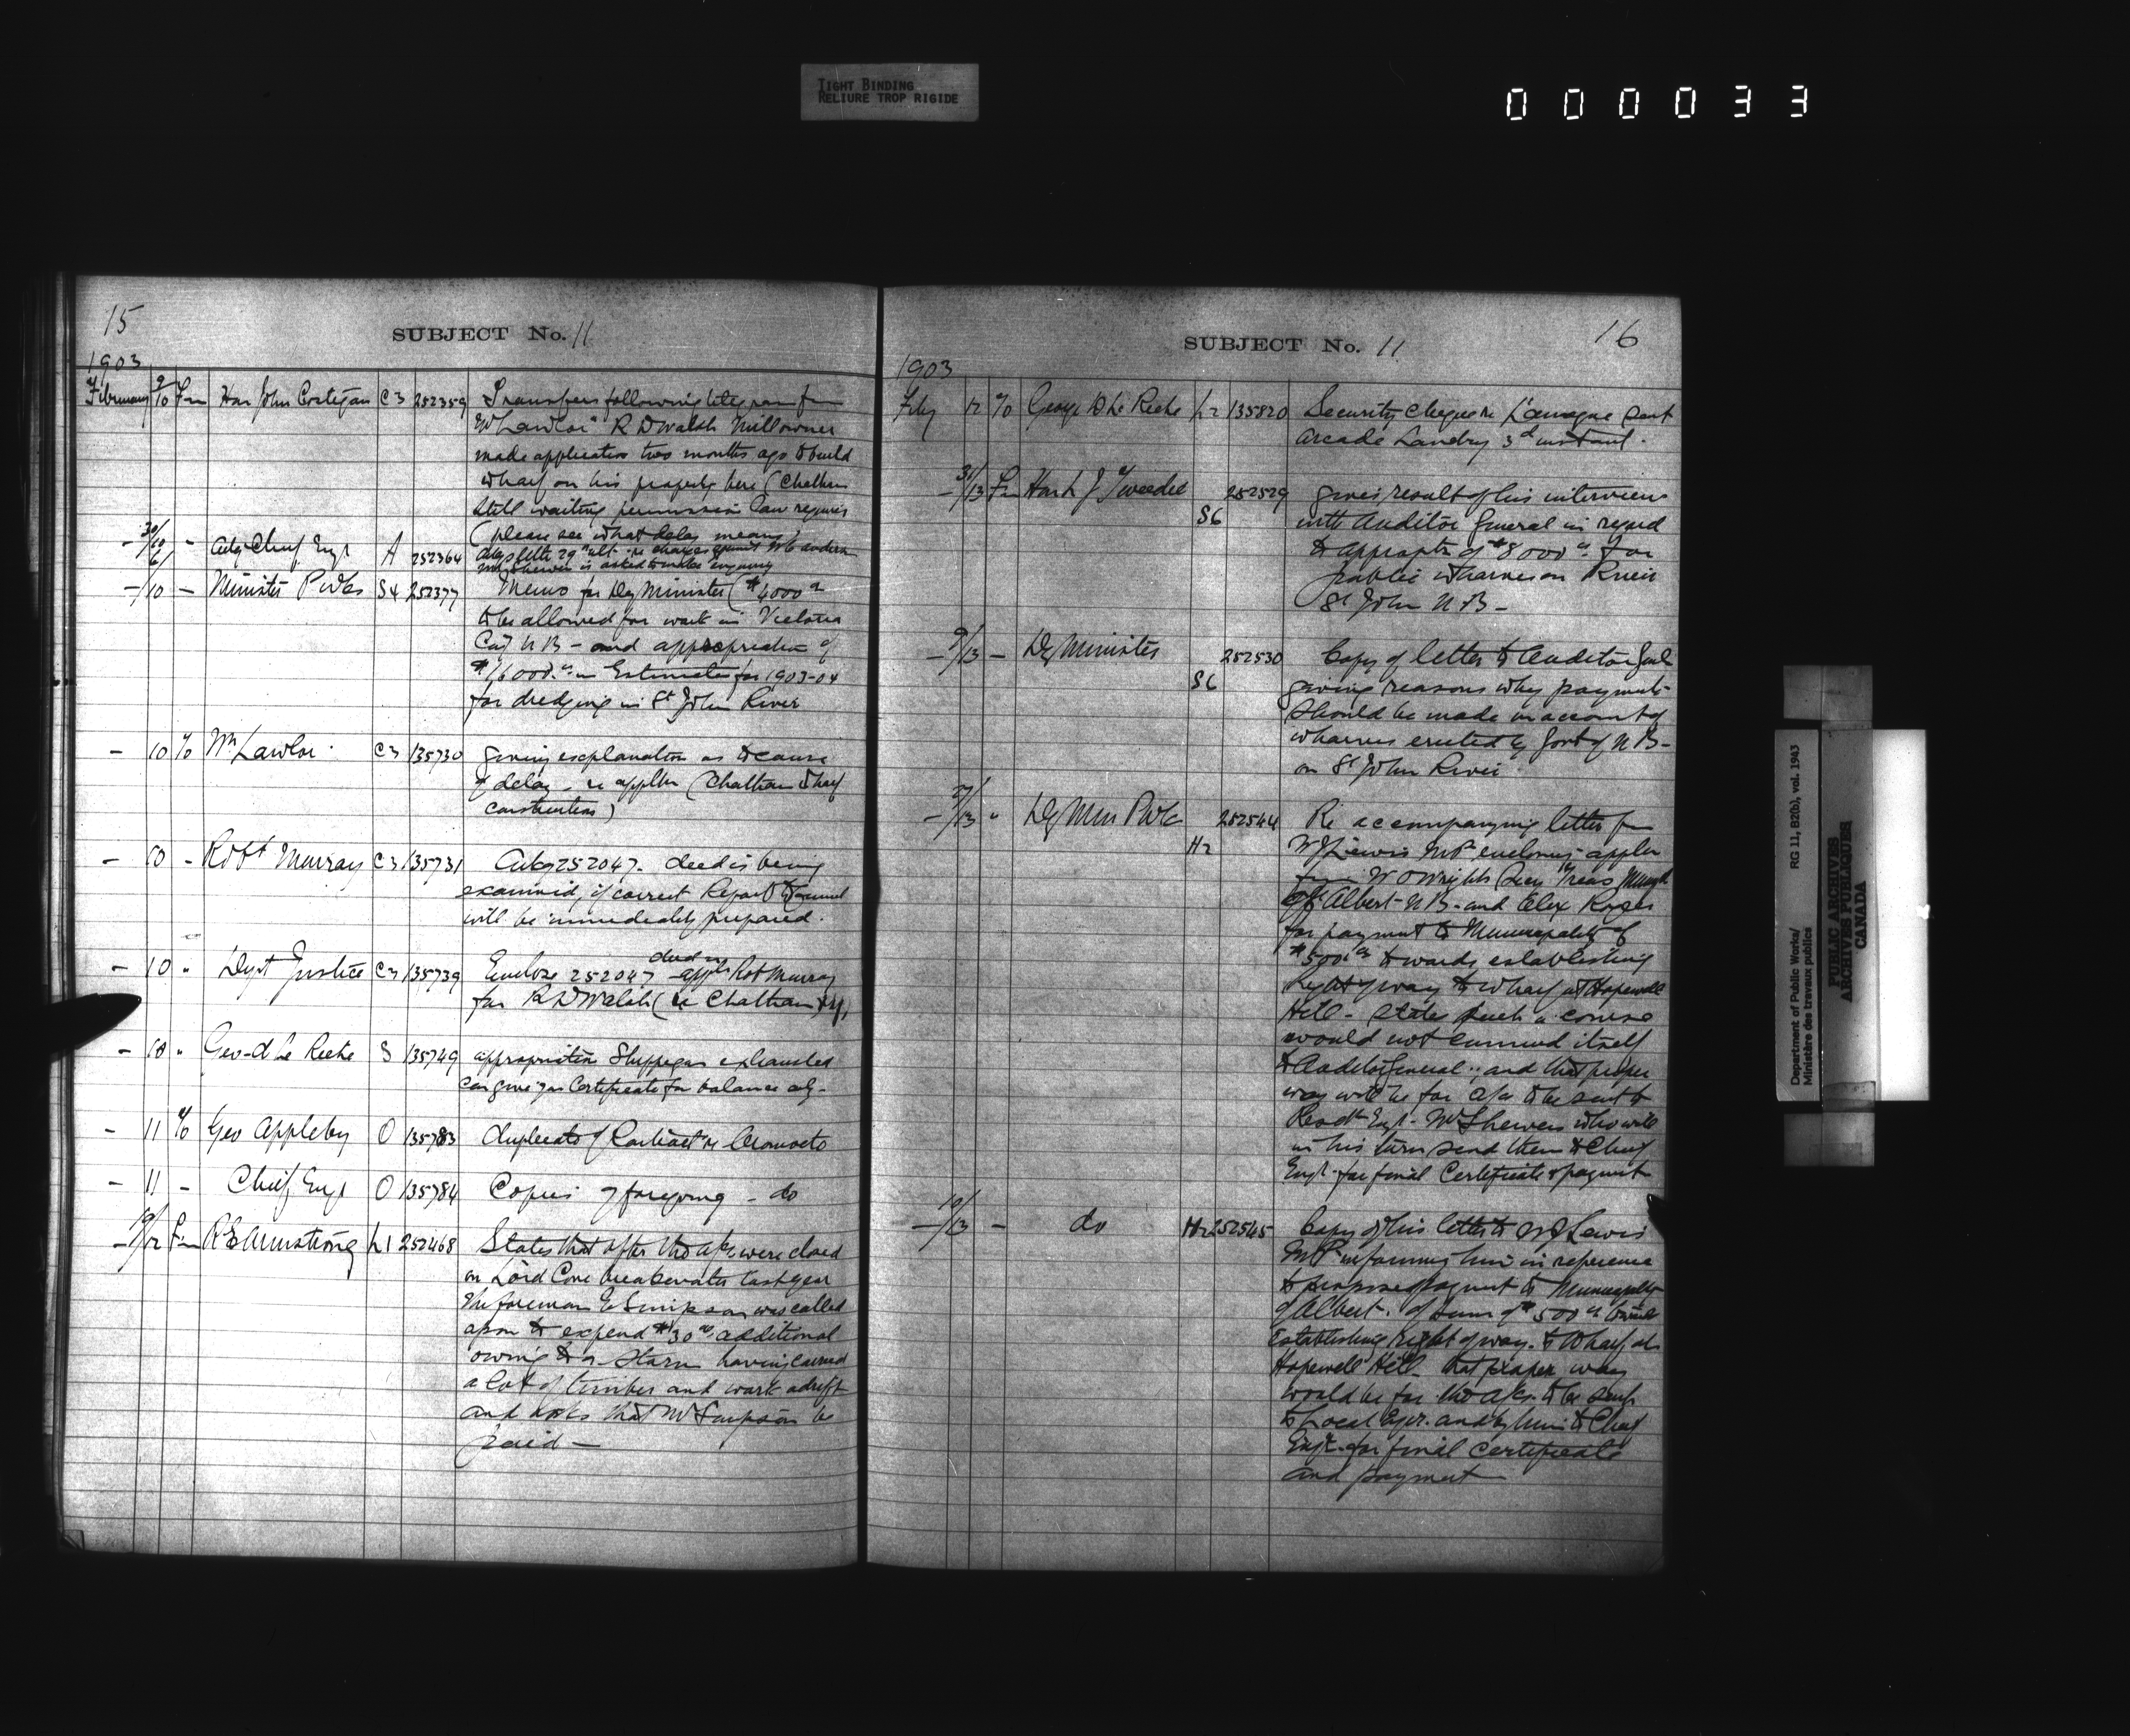 TIGHT BINDING
RELIURE TROP RIGIDE
000033
15
SUBJECT No. 11
1903
February 9/10 Fm Hon John Costigan C3 252359 Transfers following telegram fm
Wm Lawlor " R D Walsh Millowner
made application two months ago to build
wharf on his property here (Chatham
still waiting permission Can
(please see what delay means)
- 30/10 - Actg Chief Engr A 252364
- 6/10 - Minister P Wks S4 252377 Memo for Dy Minister ($4000
to be allowed for work in Victoria
Co NB - and appropriation of
in Estimates for 1903-04
for dredging in St John River
- 10 To Wm Lawlor C3 135730 giving explanation as to cause
of delay - re appltn (Chatham wharf
construction)
- 10 - Robt Murray C3 135731 252047. deed is being
examined, if correct Report to Council
will be immediately prepared.
- 10 " Dept Justice C3 135739 Enclose 252047 deed in appln Rob Murray
for R D Walsh (re Chatham
- 10 " Geo d La Roche S 135749 appropriation Shippegan exhausted
can give you Certificate for balance only -
- 11 To Geo Appleby O 135783 duplicate of Contract re Oromocto
- 11 - Chief Engr O 135784 Copies of foregoing - do
- 10/12 Fm R E Armstrong L1 252468 States that after the a/cs were closed
on Lord Cove breakwater last year
the foreman E Simpson was called
upon to expend $30 additional
owing to a storm having carried
a lot of timber and work adrift
and asks that Mr Simpson be
paid -
16
SUBJECT No. 11
1903
Feby 12 To George D La Roche L2 135820 Security cheque re L'amegue sent
Arcade Landry 3d instant.
- 31/13 Fm Hon L J Tweedie S6 252529 gives result of his interview
with Auditor General in regard
to appropts of $8000 for
public wharves on River
St John N B -
- 9/13 - Dy Minister S6 252530 Copy of letter to Auditor Genl
giving reasons why payments
should be made on account of
wharves erected by Govt of N B -
on St John River
- 9/13 " Dy Min P Wks H2 252544 Re accompanying letter fm
W J Lewis MP enclosing appln
fm W O Wright Secy Treas
of Albert N B - and Alex Rogers
for payment to Municipality of
$500 towards establishing
right of way to wharf at Hopewell
Hill - states such a course
would not commend itself
to Auditor General - and that proper
way will be for a/cs to be sent to
Resdt Engr. Mr Shewen who will
in his turn send them to Chief
Engr for final Certificate & payment
- 10/13 - do H2 252545 Copy of his letter to W J Lewis
MP informing him in reference
to proposed payment to Municipality
of Albert. of sum of $500 towards
establishing right of way to Wharf at
Hopewell Hill - that proper way
would be for the a/cs. to be sent
to Local Engr. and by him to Chief
Engr. for final certificate
and payment
Department of Public Works/ RG 11, B2(b), vol. 1943
Ministère des travaux publics
PUBLIC ARCHIVES
ARCHIVES PUBLIQUES
CANADA